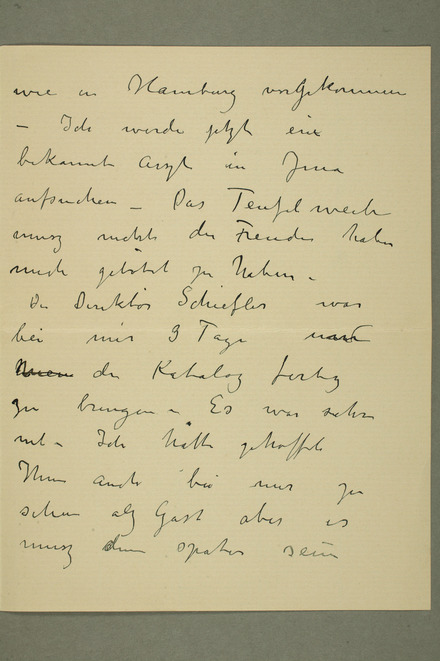 wie in Hamburg vorgekommen
– Ich werde jetzt ein
bekannte Arzt in Jena
aufsuchen – Das Teufelweib
musz nicht die Freude haben
mich getötet zu haben –
Der Direktor Schiefler war
bei mir 9 Tage
die Katalog fertig
zu bringen – Es war sehr
net – Ich hätte gehofft
Ihnen auch bei mir zu
sehen als Gast aber es
musz dann später sein